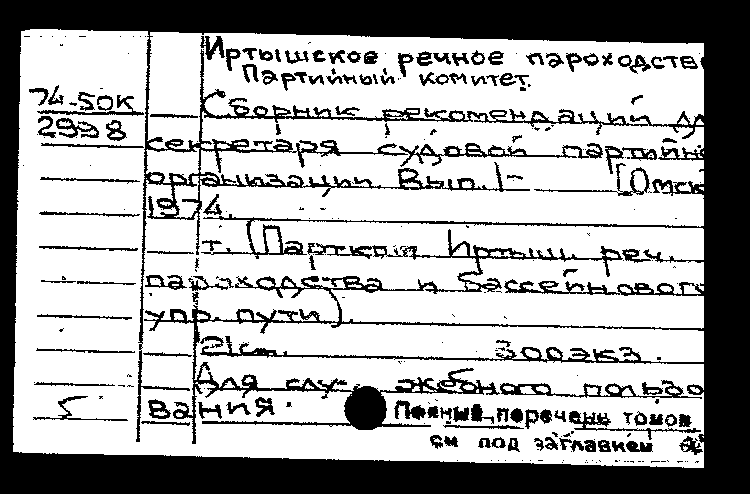 Иртышское речное пароходств
Партийный комитет.
74-50К
2998
Сборник рекомендаций дл
секретаря судовой партийн
организации. Вып. 1- [Омск
1974.
т. (Партком Иртыш. реч.
пароходства и бассейнового
упр. пути).
21 cm. 300 экз.
Для слу- жебного пользо
5 вания.
Полный перечень томов
см под заглавием